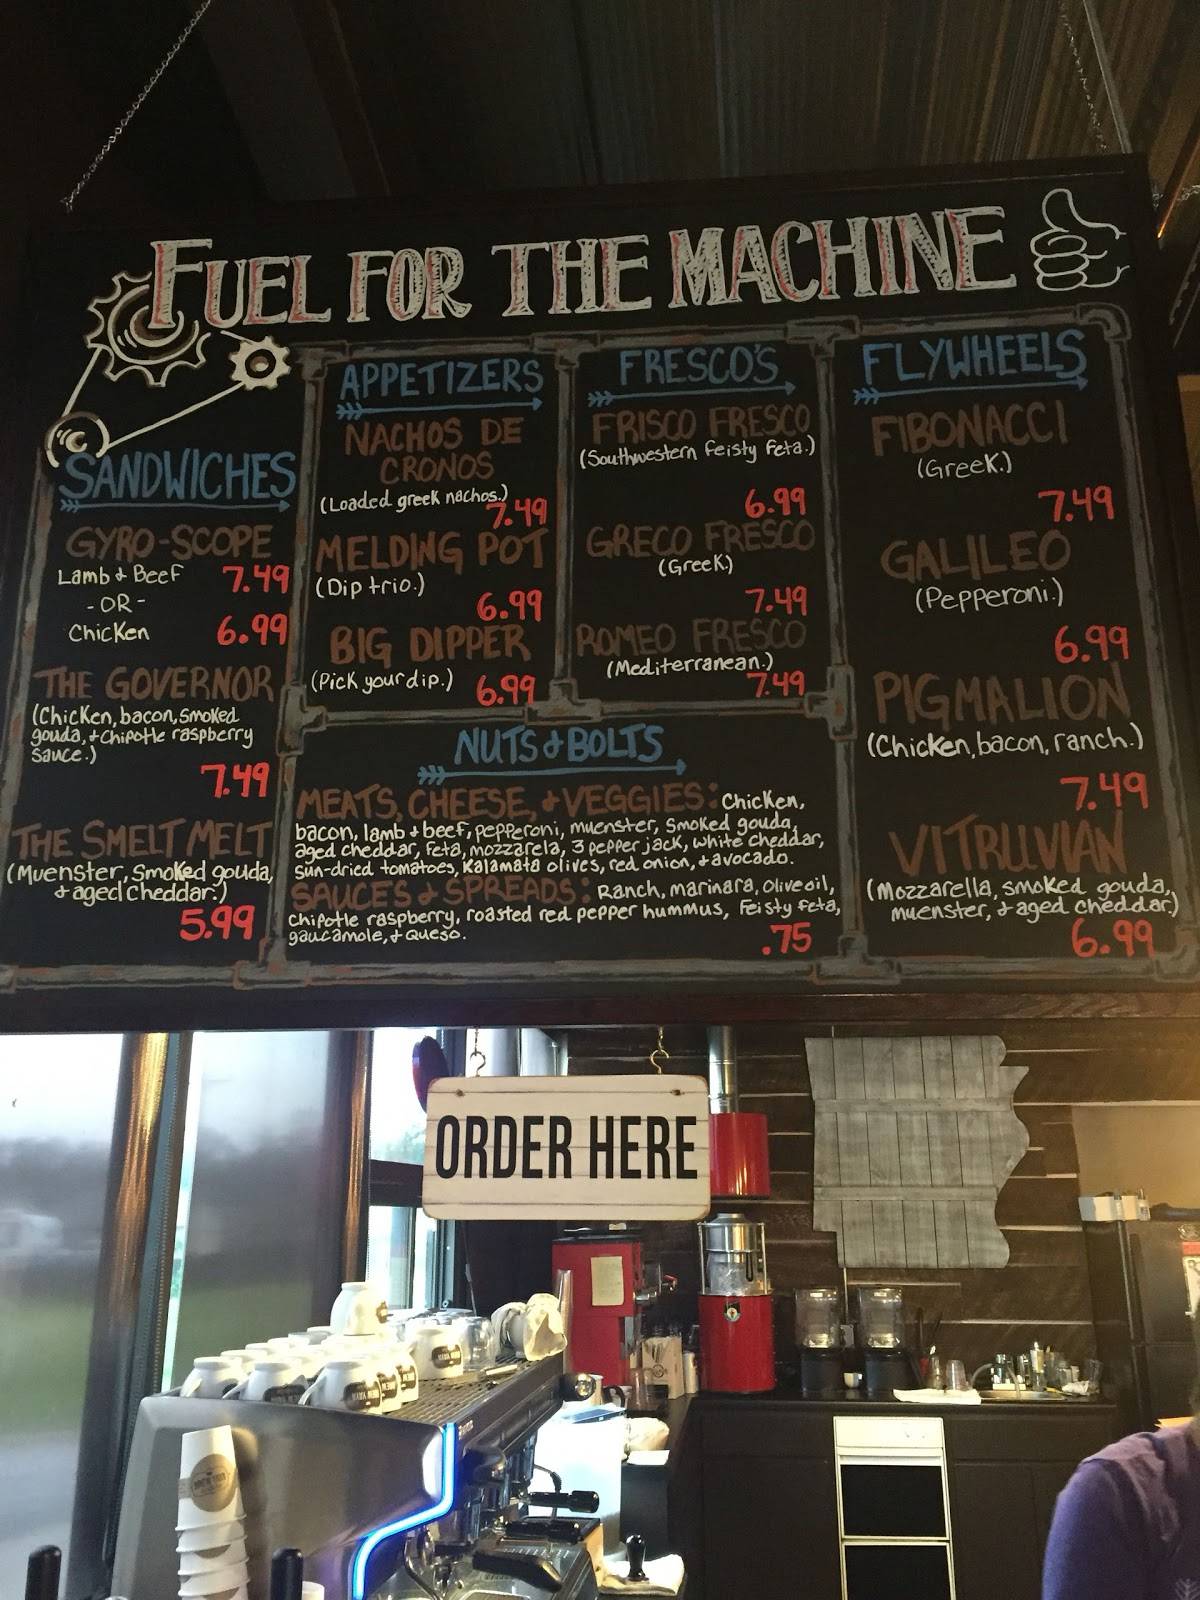 FUEL FOR THE MACHINE
SANDWICHES
GYRO-SCOPE
Lamb & Beef 7.49
- OR -
Chicken 6.99
THE GOVERNOR
(Chicken, bacon, smoked
gouda, & chipotle raspberry
sauce.)
7.49
THE SMELT MELT
(Muenster, smoked gouda,
& aged cheddar.)
5.99
APPETIZERS
NACHOS DE
CRONOS
(Loaded greek nachos.)
7.49
MELDING POT
(Dip trio.)
6.99
BIG DIPPER
(Pick your dip.) 6.99
FRESCO'S
FRISCO FRESCO
(Southwestern feisty feta.)
6.99
GRECO FRESCO
(Greek.)
7.49
ROMEO FRESCO
(Mediterranean.)
7.49
NUTS & BOLTS
MEATS, CHEESE, & VEGGIES: Chicken,
bacon, lamb & beef, pepperoni, muenster, smoked gouda,
aged cheddar, feta, mozzarela, 3 pepper jack, white cheddar,
sun-dried tomatoes, Kalamata olives, red onion, & avocado.
SAUCES & SPREADS: Ranch, marinara, olive oil,
chipotle raspberry, roasted red pepper hummus, feisty feta,
gaucamole, & queso.
.75
FLYWHEELS
FIBONACCI
(Greek.)
7.49
GALILEO
(Pepperoni.)
6.99
PIGMALION
(Chicken, bacon, ranch.)
7.49
VITRUVIAN
(Mozzarella, smoked gouda,
muenster, & aged cheddar.)
6.99
ORDER HERE